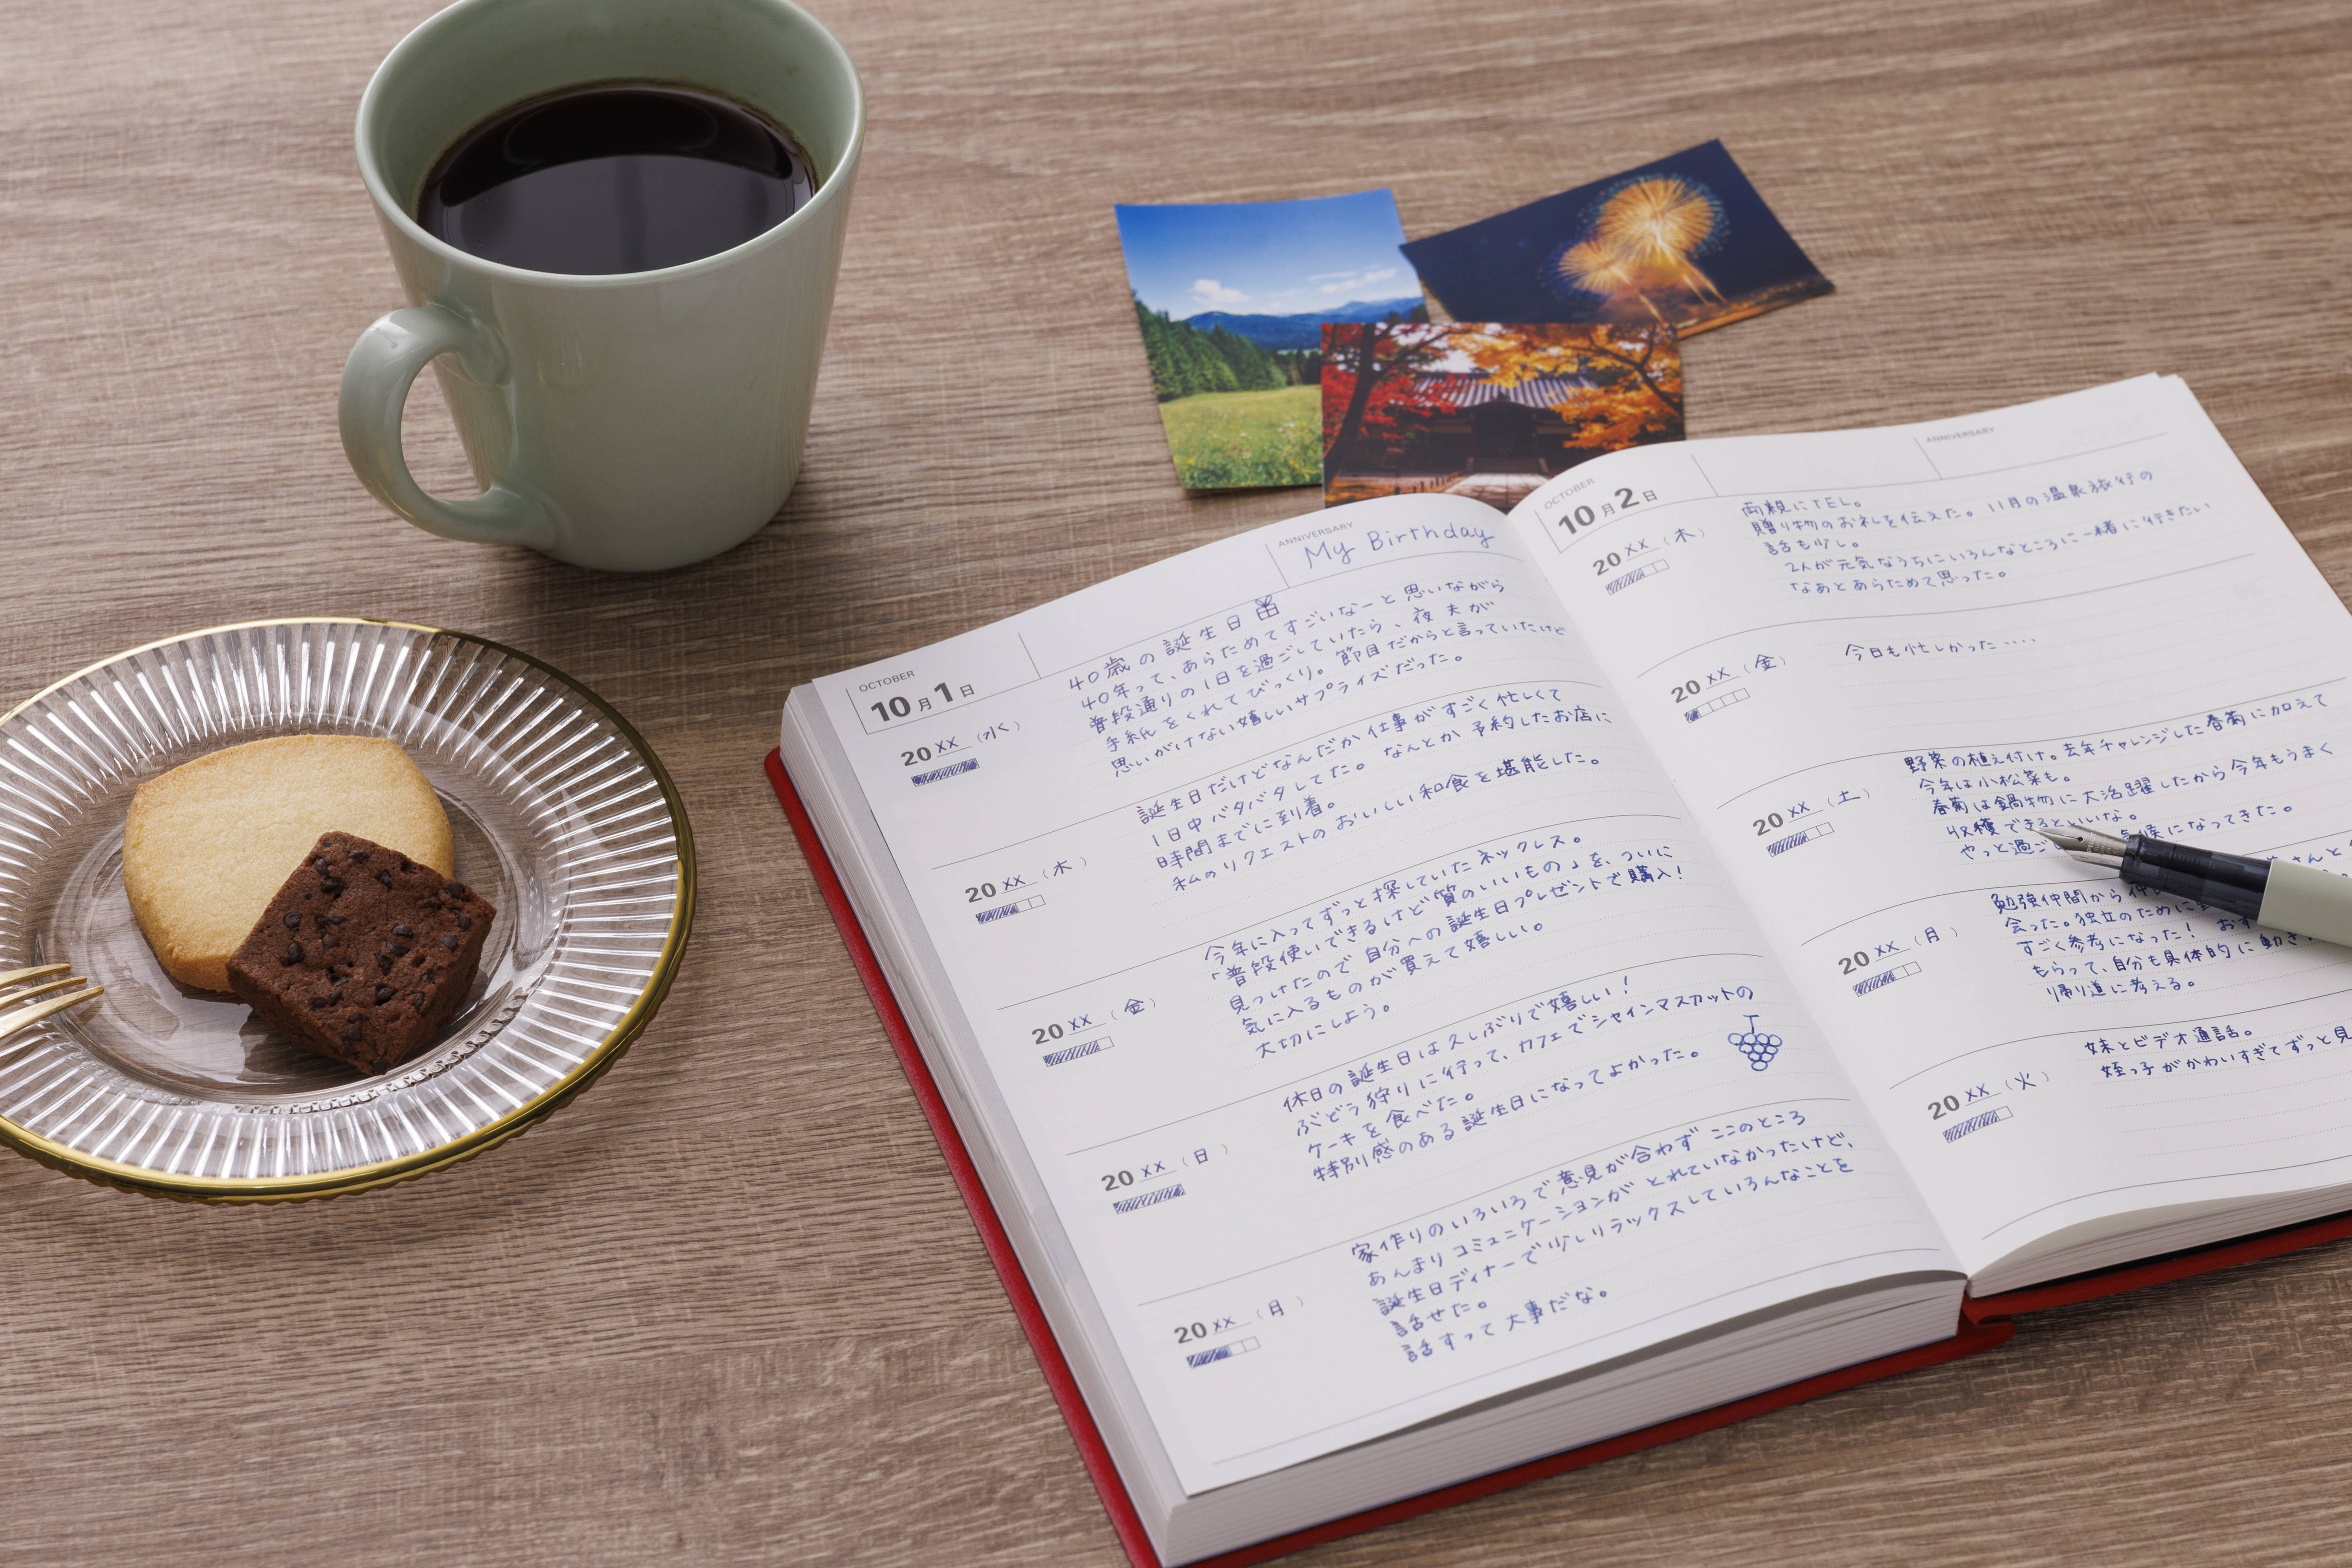 OCTOBER
10月1日
ANNIVERSARY
My Birthday
20XX (水)
40歳の誕生日
40年って、あらためてすごいなーと思いながら
普段通りの1日を過ごしていたら、夜 夫が
手紙をくれてびっくり。節目だからと言っていたけど
思いがけない嬉しいサプライズだった。
20XX (木)
誕生日だけどなんだか仕事がすごく忙しくて
1日中バタバタしてた。なんとか予約したお店に
時間までに到着。
私のリクエストのおいしい和食を堪能した。
20XX (金)
今年に入ってずっと探していたネックレス。
「普段使いできるけど質のいいもの」を、ついに
見つけたので自分への誕生日プレゼントで購入!
気に入るものが買えて嬉しい。
大切にしよう。
20XX (日)
休日の誕生日は久しぶりで嬉しい!
ぶどう狩りに行って、カフェでシャインマスカットの
ケーキを食べた。
特別感のある誕生日になってよかった。
20XX (月)
家作りのいろいろで意見が合わず ここのところ
あんまりコミュニケーションがとれていなかったけど、
誕生日ディナーで少しリラックスしていろんなことを
話せた。
話すって大事だな。
OCTOBER
10月2日
ANNIVERSARY
20XX (木)
両親にTEL。
贈り物のお礼を伝えた。11月の温泉旅行の
話も少し。
2人が元気なうちにいろんなところに一緒に行きたい
なあとあらためて思った。
20XX (金)
今日も忙しかった....
20XX (土)
野菜の植え付け。去年チャレンジした春菊に加えて
今年は小松菜も。
春菊は鍋物に大活躍したから今年もうまく
収穫できるといいな。
やっと過ご 気候になってきた。
20XX (月)
勉強仲間から さんと
会った。独立のために
すごく参考になった!
もらって、自分も具体的に動き
帰り道に考える。
20XX (火)
妹とビデオ通話。
姪っ子がかわいすぎてずっと見